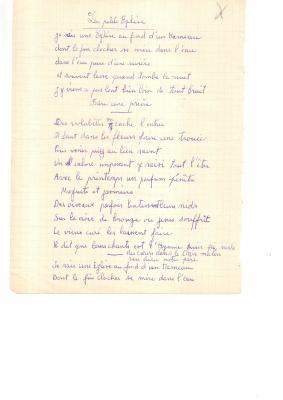 La petite Eglise
je sais une Eglise au fond d'un Hameau
dont le fin clocher se mire dans l'eau
dans l'eau pure d'une rivière
et souvent lasse quand tombe la nuit
j'y viens a pas lent bien loin de tout bruit
Faire une prière
Des volubilis cache l'entrée
Il faut dans les fleurs faire une trouée
Pour venir au lieu saint
Un calme imposant y saisi tout l'être
Avec le printemps un parfum pénètre
Muguets et jasmins
Des oiseaux parfois leurs nids
Sur la croix de bronze ou Jésus souffrit
Le vieux curé les laissent faire
Il dit que leur chants est l'
dans le matin
dieu notre père
Je sais une Eglise au fond d'un Hameau
Dont le fin clocher se mire dans l'eau